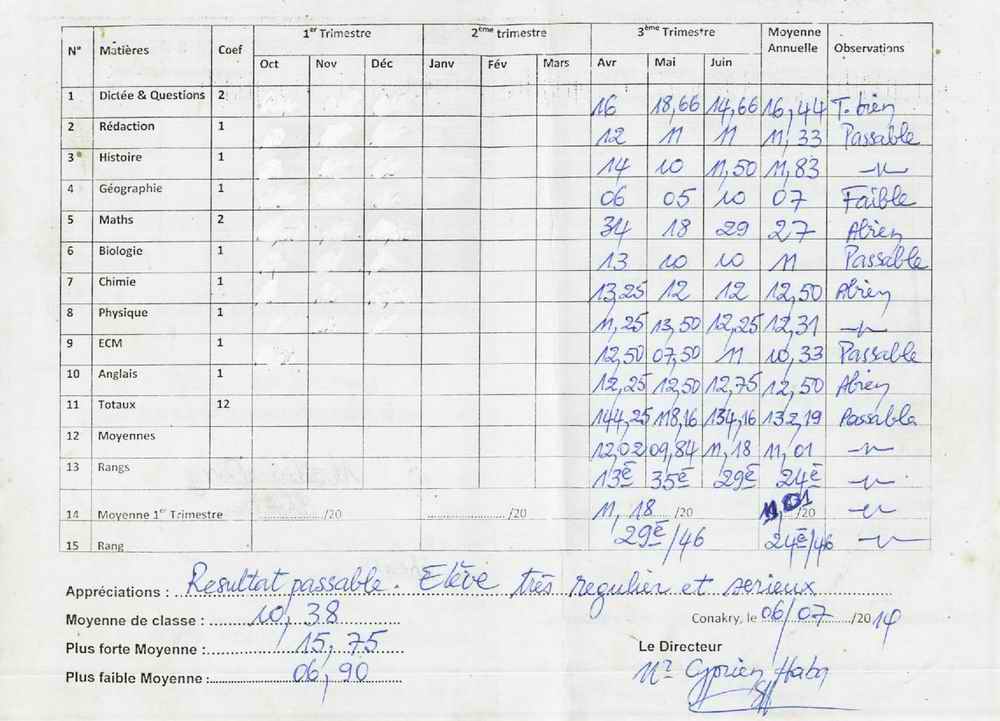 N° Matières Coef 1er Trimestre 2ème trimestre 3ème Trimestre Moyenne Annuelle Observations
Oct Nov Déc Janv Fév Mars Avr Mai Juin
1 Dictée & Questions 2 16 18,66 14,66 16,44 T. bien
2 Rédaction 1 12 11 11 11,33 Passable
3 Histoire 1 14 10 11,50 11,83 -//-
4 Géographie 1 06 05 10 07 Faible
5 Maths 2 34 18 29 27 Abien
6 Biologie 1 13 10 10 11 Passable
7 Chimie 1 13,25 12 12 12,50 Abien
8 Physique 1 11,25 13,50 12,25 12,31 -//-
9 ECM 1 12,50 07,50 11 10,33 Passable
10 Anglais 1 12,25 12,50 12,75 12,50 Abien
11 Totaux 12 144,25 118,16 134,16 132,19 Passable
12 Moyennes 12,02 09,84 11,18 11,01 -//-
13 Rangs 13è 35è 29è 24è -//-
14 Moyenne 1er Trimestre ............../20 ............../20 11,18 /20 11,01 /20 -//-
15 Rang 29è/46 24è/46 -//-
Appréciations : Resultat passable. Elève très regulier et serieux
Moyenne de classe : 10,38
Conakry, le 06/07/2014
Plus forte Moyenne : 15,75
Le Directeur
Plus faible Moyenne : 06,90
Mr Cyprien Haba